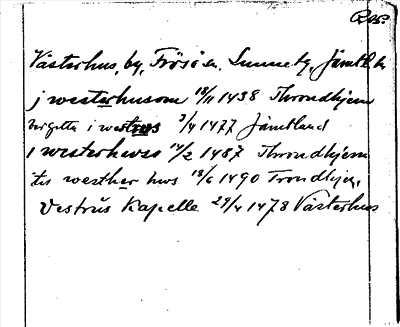 Väster hus, by, Frösö sn. Sunne tg, Jämtl. l.
j westerhusom 18/11 1438 Throndhjem
birgitta i westhus 3/4 1477 Jämtland
i westerhwss 14/2 1487 Throndhjem
tii westher hws 18/6 1490 Trondhjem
Vestrŭs Kapelle 29/4 1478 Västerhus